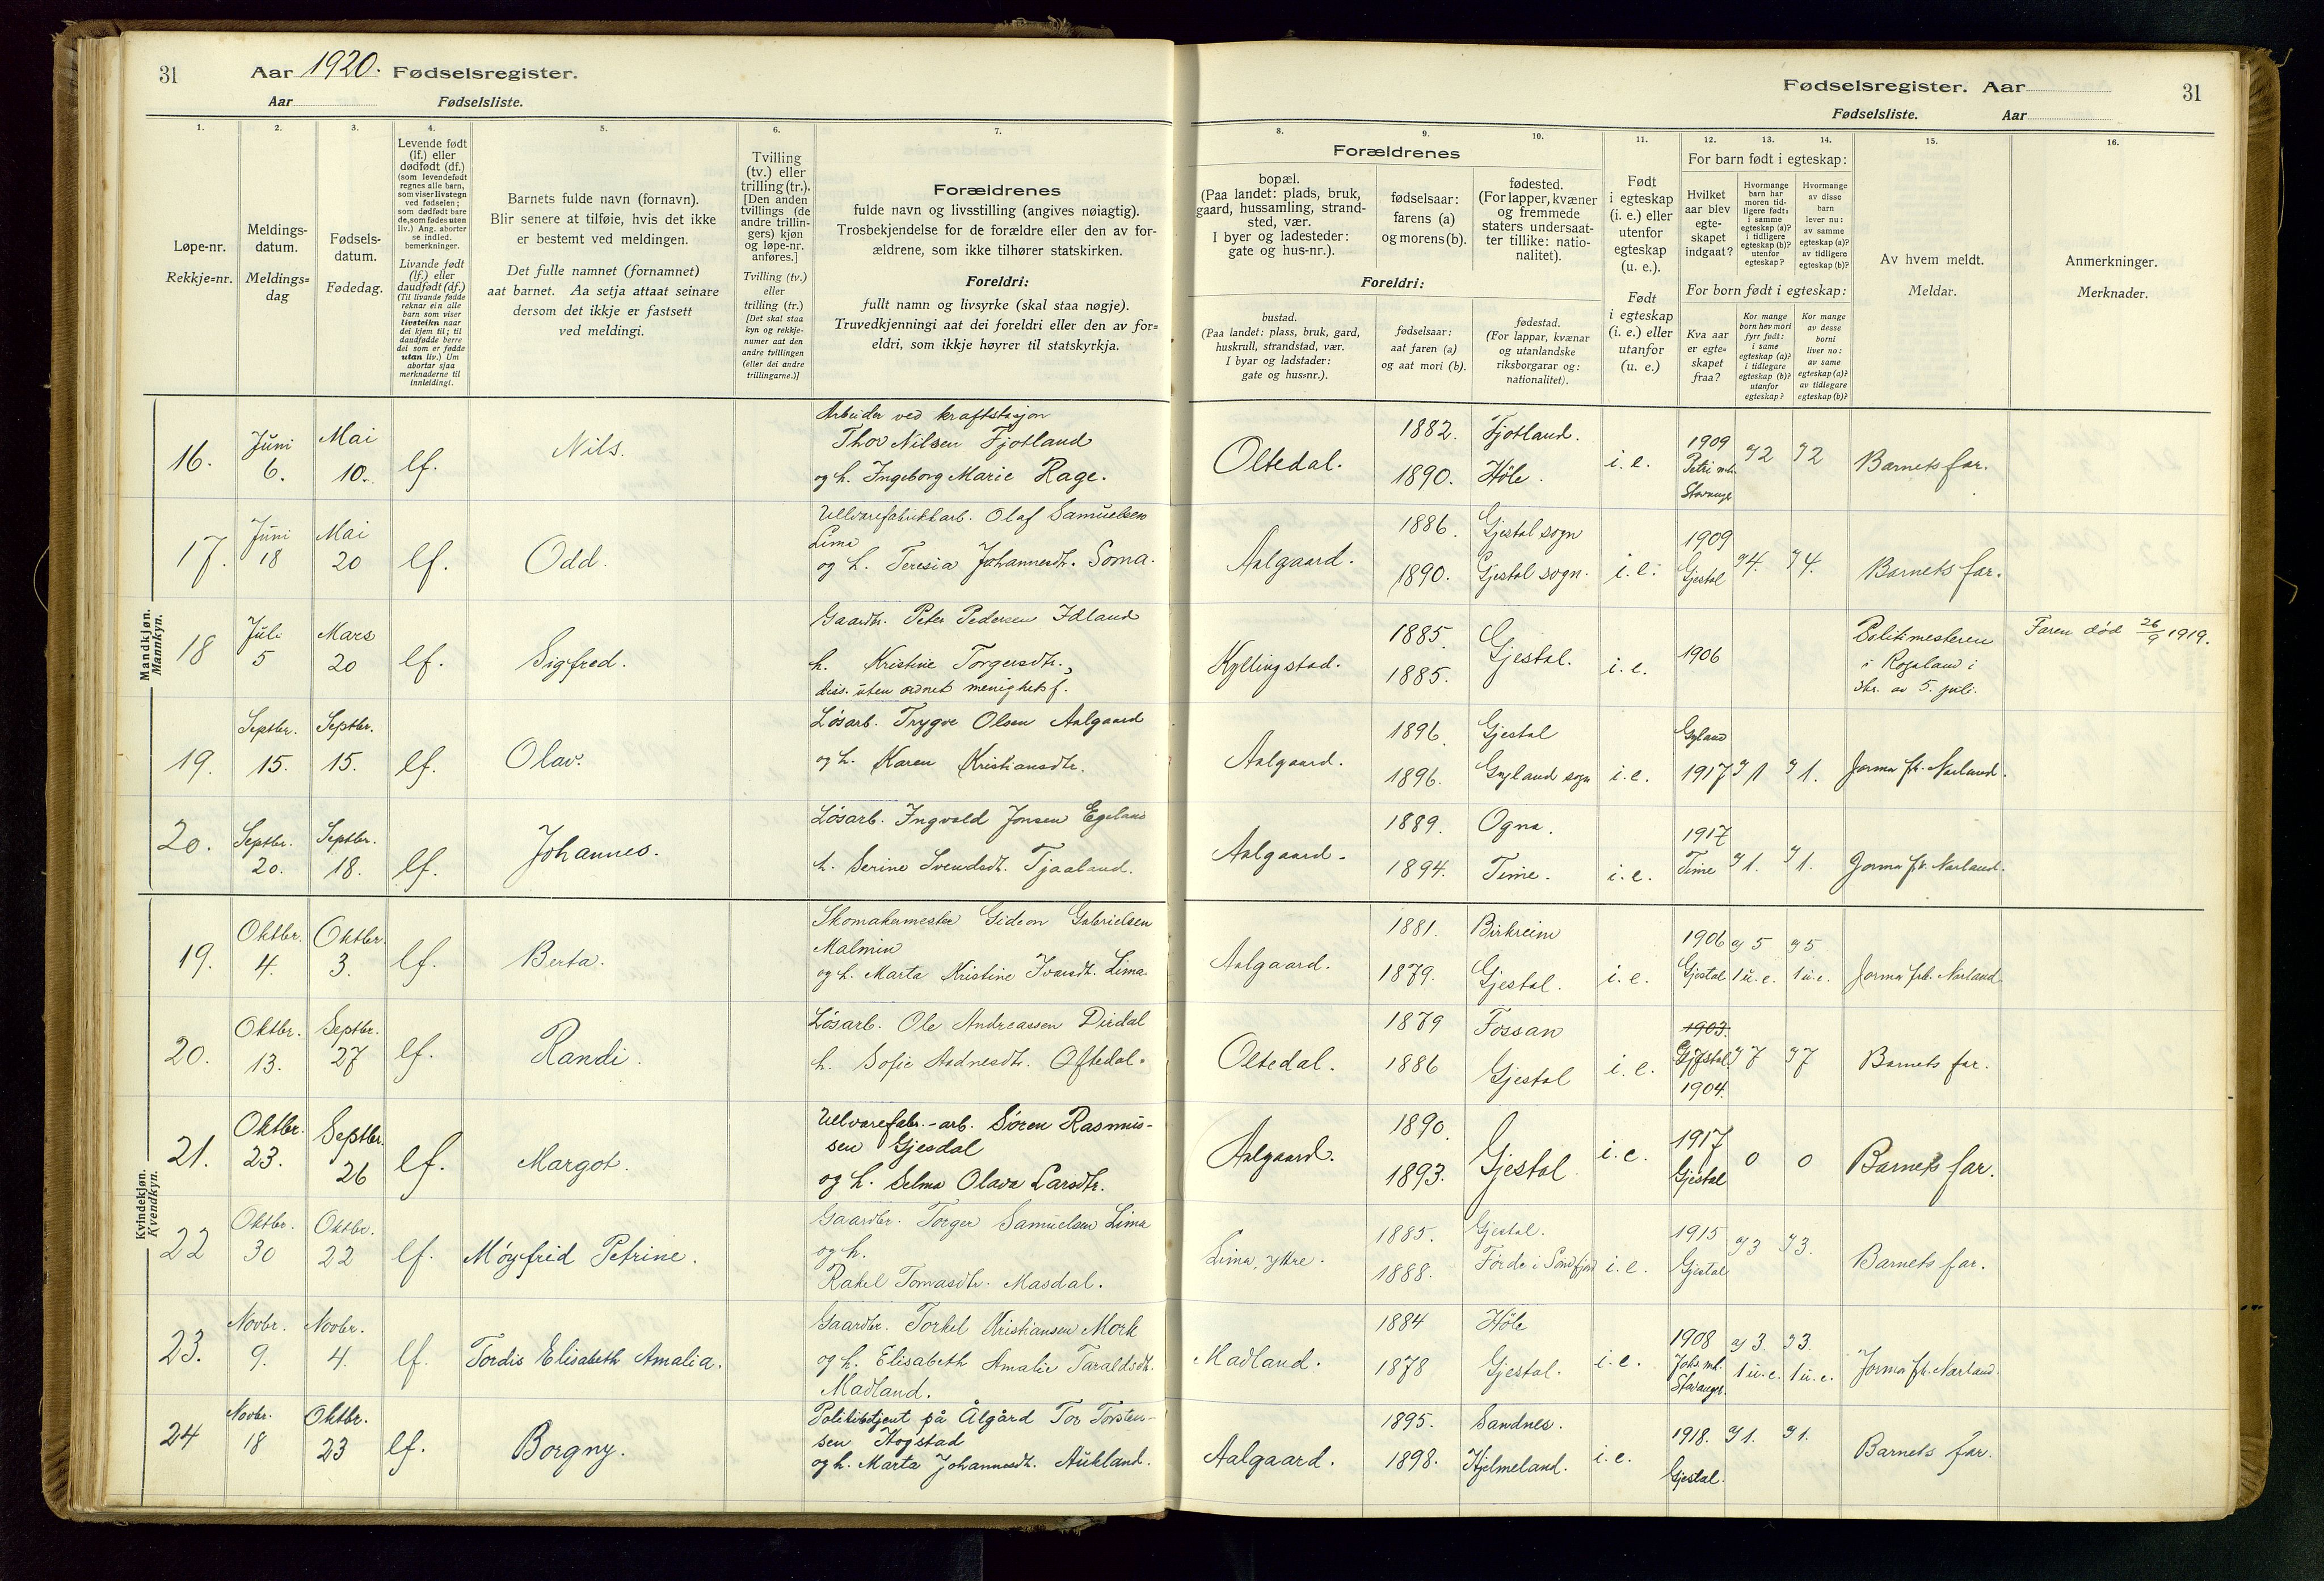 31
Aar 1920. Fødselsregister.
Aar Fødselsliste.
Fødselsregister. Aar
Fødselsliste. Aar
31
1.
Løpe-nr.
Rekkje=nr.
2.
Meldings-
datum.
Meldings=
dag
3.
Fødsels-
datum.
Fødedag.
4.
Levende født
(lf.) eller
dødfødt (df.)
(som levendefødt
regnes alle barn,
som viser livstegn
ved fødselen;
som dødfødt bare
de, som fødes uten
liv.) Ang. aborter
se indled.
bemerkninger.
Livande født
(lf.) eller
daudfødt (df.)
(Til livande fødde
reknar ein alle
barn som viser
livsteikn naar
dei kjem til; til
daudfødde berre
dei som er fødde
utan liv.) Um
abortar sjaa
merknaderne til
innleidingi.
5.
Barnets fulde navn (fornavn).
Blir senere at tilføie, hvis det ikke
er bestemt ved meldingen.
Det fulle namnet (fornamnet)
aat barnet. Aa setja attaat seinare
dersom det ikkje er fastsett
ved meldingi.
6.
Tvilling
(tv.) eller
trilling (tr.).
[Den anden
tvillings (de
andre trillin-
gers) kjøn
og løpe-nr.
anføres.]
Tvilling (tv.)
eller
trilling (tr.)
[Det skal staa
kyn og rekkje-
numer aat den
andre tvillingen
(eller dei andre
trillingarne.)]
7.
Forældrenes
fulde navn og livsstilling (angives nøiagtig).
Trosbekjendelse for de forældre eller den av for-
ældrene, som ikke tilhører statskirken.
Foreldri:
fullt namn og livsyrke (skal staa nøgje).
Truvedkjenningi aat dei foreldri eller den av for=
eldri, som ikkje høyrer til statskyrkja.
Forældrenes
8.
bopæl.
(Paa landet: plads, bruk,
gaard, hussamling, strand-
sted, vær.
I byer og ladesteder:
gate og hus-nr.).
9.
fødselsaar:
farens (a)
og morens (b).
10.
fødested.
(For lapper, kvæner
og fremmede
staters undersaat-
ter tillike: natio-
nalitet).
Foreldri:
bustad.
(Paa landet: plass, bruk, gard,
huskrull, strandstad, vær.
I byar og ladstader:
gate og hus=nr.).
fødselsaar:
aat faren (a)
og aat mori (b).
fødestad.
(For lappar, kvænar
og utanlandske
riksborgarar og:
nationalitet).
11.
Født
i egteskap
(i. e.) eller
utenfor
egteskap
(u. e.).
Født
i egteskap
(i. e.) eller
utanfor
egteskap
(u. e.)
12. 13. 14.
For barn født i egteskap:
Hvilket
aar blev
egte-
skapet
indgaat?
Hvormange
barn har
moren tid-
ligere født:
i samme
egteskap (a)?
i tidligere
egteskap (b)?
utenfor
egteskap?
Hvormange
av disse
barn
lever nu:
av samme
egteskap (a)?
av tidligere
egteskap (b)?
For born født i egteskap:
Kva aar
er egte=
skapet
fraa?
Kor mange
born hev mori
fyrr født:
i same
egteskap (a)?
i tidlegare
egteskap (b)?
utanfor
egteskap?
Kor mange
av desse
borni
liver no:
av same
egteskap (a)?
av tidlegare
egteskap (b)?
15.
Av hvem meldt.
Meldar.
16.
Anmerkninger.
Merknader.
Mandkjøn.
Mannkyn.
16. Juni 6. Mai 10. lf. Nils.
Arbeider ved kraftstasjon
Thor Nilsen Fjotland
og h. Ingeborg Marie Rage.
Oltedal. 1882. 1890. Fjotland. Høle. i. e. 1909 Petri mh. Stavanger 2 2 Barnets far.
17. Juni 18 Mai 20 lf. Odd.
Uldvarefabrikkarb. Olaf Samuelsen
Lima
og h. Teresia Johannesdtr. Soma.
Aalgaard. 1886. 1890. Gjestal sogn Gjestal sogn. i. e. 1909 Gjestal 4. 4. Barnets far.
18 Juli 5 Mars 20 lf. Sigfred.
Gaardbr. Peter Pedersen Idland
h. Kristine Torgersdtr.,
diss. uten ordnet menighetsf.
Kyllingstad. 1885. 1885. Gjestal. i. e. 1906
Politimesteren
i Rogaland i
skr. av 5. juli.
Faren død 26/9 1919.
19. Septbr. 15. Septbr. 15. lf. Olav.
Løsarb. Trygve Olsen Aalgaard
og h. Karen Kristiansdtr.
Aalgaard. 1896. 1896. Gjestal Gyland sogn i. e. Gyland 1917 1 1. Jorma fr. Narland.
20. Septbr. 20. Septbr. 18. lf. Johannes.
Løsarb. Ingvald Jonsen Egeland
h. Serine Svendsdtr. Tjaaland.
Aalgaard. 1889. 1894. Ogna. Time. i. e. 1917 Time 1. 1. Jorma fr. Narland.
Kvindekjøn.
Kvendkyn.
19. Oktbr. 4. Oktbr. 3. lf. Berta.
Skomakermester Gideon Gabrielsen
Malmin
og h. Marta Kristine Ivarsdtr. Lima.
Aalgaard. 1881. 1879. Birkreim Gjestal. i. e. 1906 Gjestal 5 1 u. e. 5 1 u. e. Jorma fr. Narland.
20. Oktbr. 13. Septbr. 27 lf. Randi.
Løsarb. Ole Andreassen Dirdal
h. Sofie Aadnesdtr. Oftedal.
Oltedal. 1879 1886 Fossan Gjestal i. e. 1903. Gjestal 1904. 7 7 Barnets far.
21. Oktbr. 23. Septbr. 26 lf. Margot.
Uldvarefabr.-arb. Søren Rasmus-
sen Gjesdal
og h. Selma Olava Larsdtr.
Aalgaard. 1890. 1893. Gjestal. i. e. 1917 Gjestal 0 0 Barnets far.
22 Oktbr. 30 Oktbr. 22 lf. Møyfrid Petrine.
Gaardbr. Torger Samuelsen Lima
og h.
Rakel Tomasdtr. Masdal.
Lima, ytre. 1885. 1888. Gjestal. Førde i Søndfjord i. e. 1915 Gjestal 3 3. Barnets far.
23. Novbr. 9. Novbr. 4. lf. Tordis Elisabeth Amalia.
Gaardbr. Torkel Kristiansen Mork
og h. Elisabeth Amalie Taraldsdtr.
Madland.
Madland. 1884 1878 Høle Gjestal. i. e. 1908 Joh. mh. Stavanger. 3. 1 u. e. 3. 1 u. e. Jorma fr. Narland.
24 Novbr. 18 Oktbr. 23 lf. Borgny.
Politibetjent på Ålgård Tor Torsten-
sen Hogstad
og h. Marta Johannesdtr. Aukland.
Aalgaard. 1895. 1898. Sandnes. Hjelmeland. i. e. 1918. Gjestal. 1. 1. Barnets far.